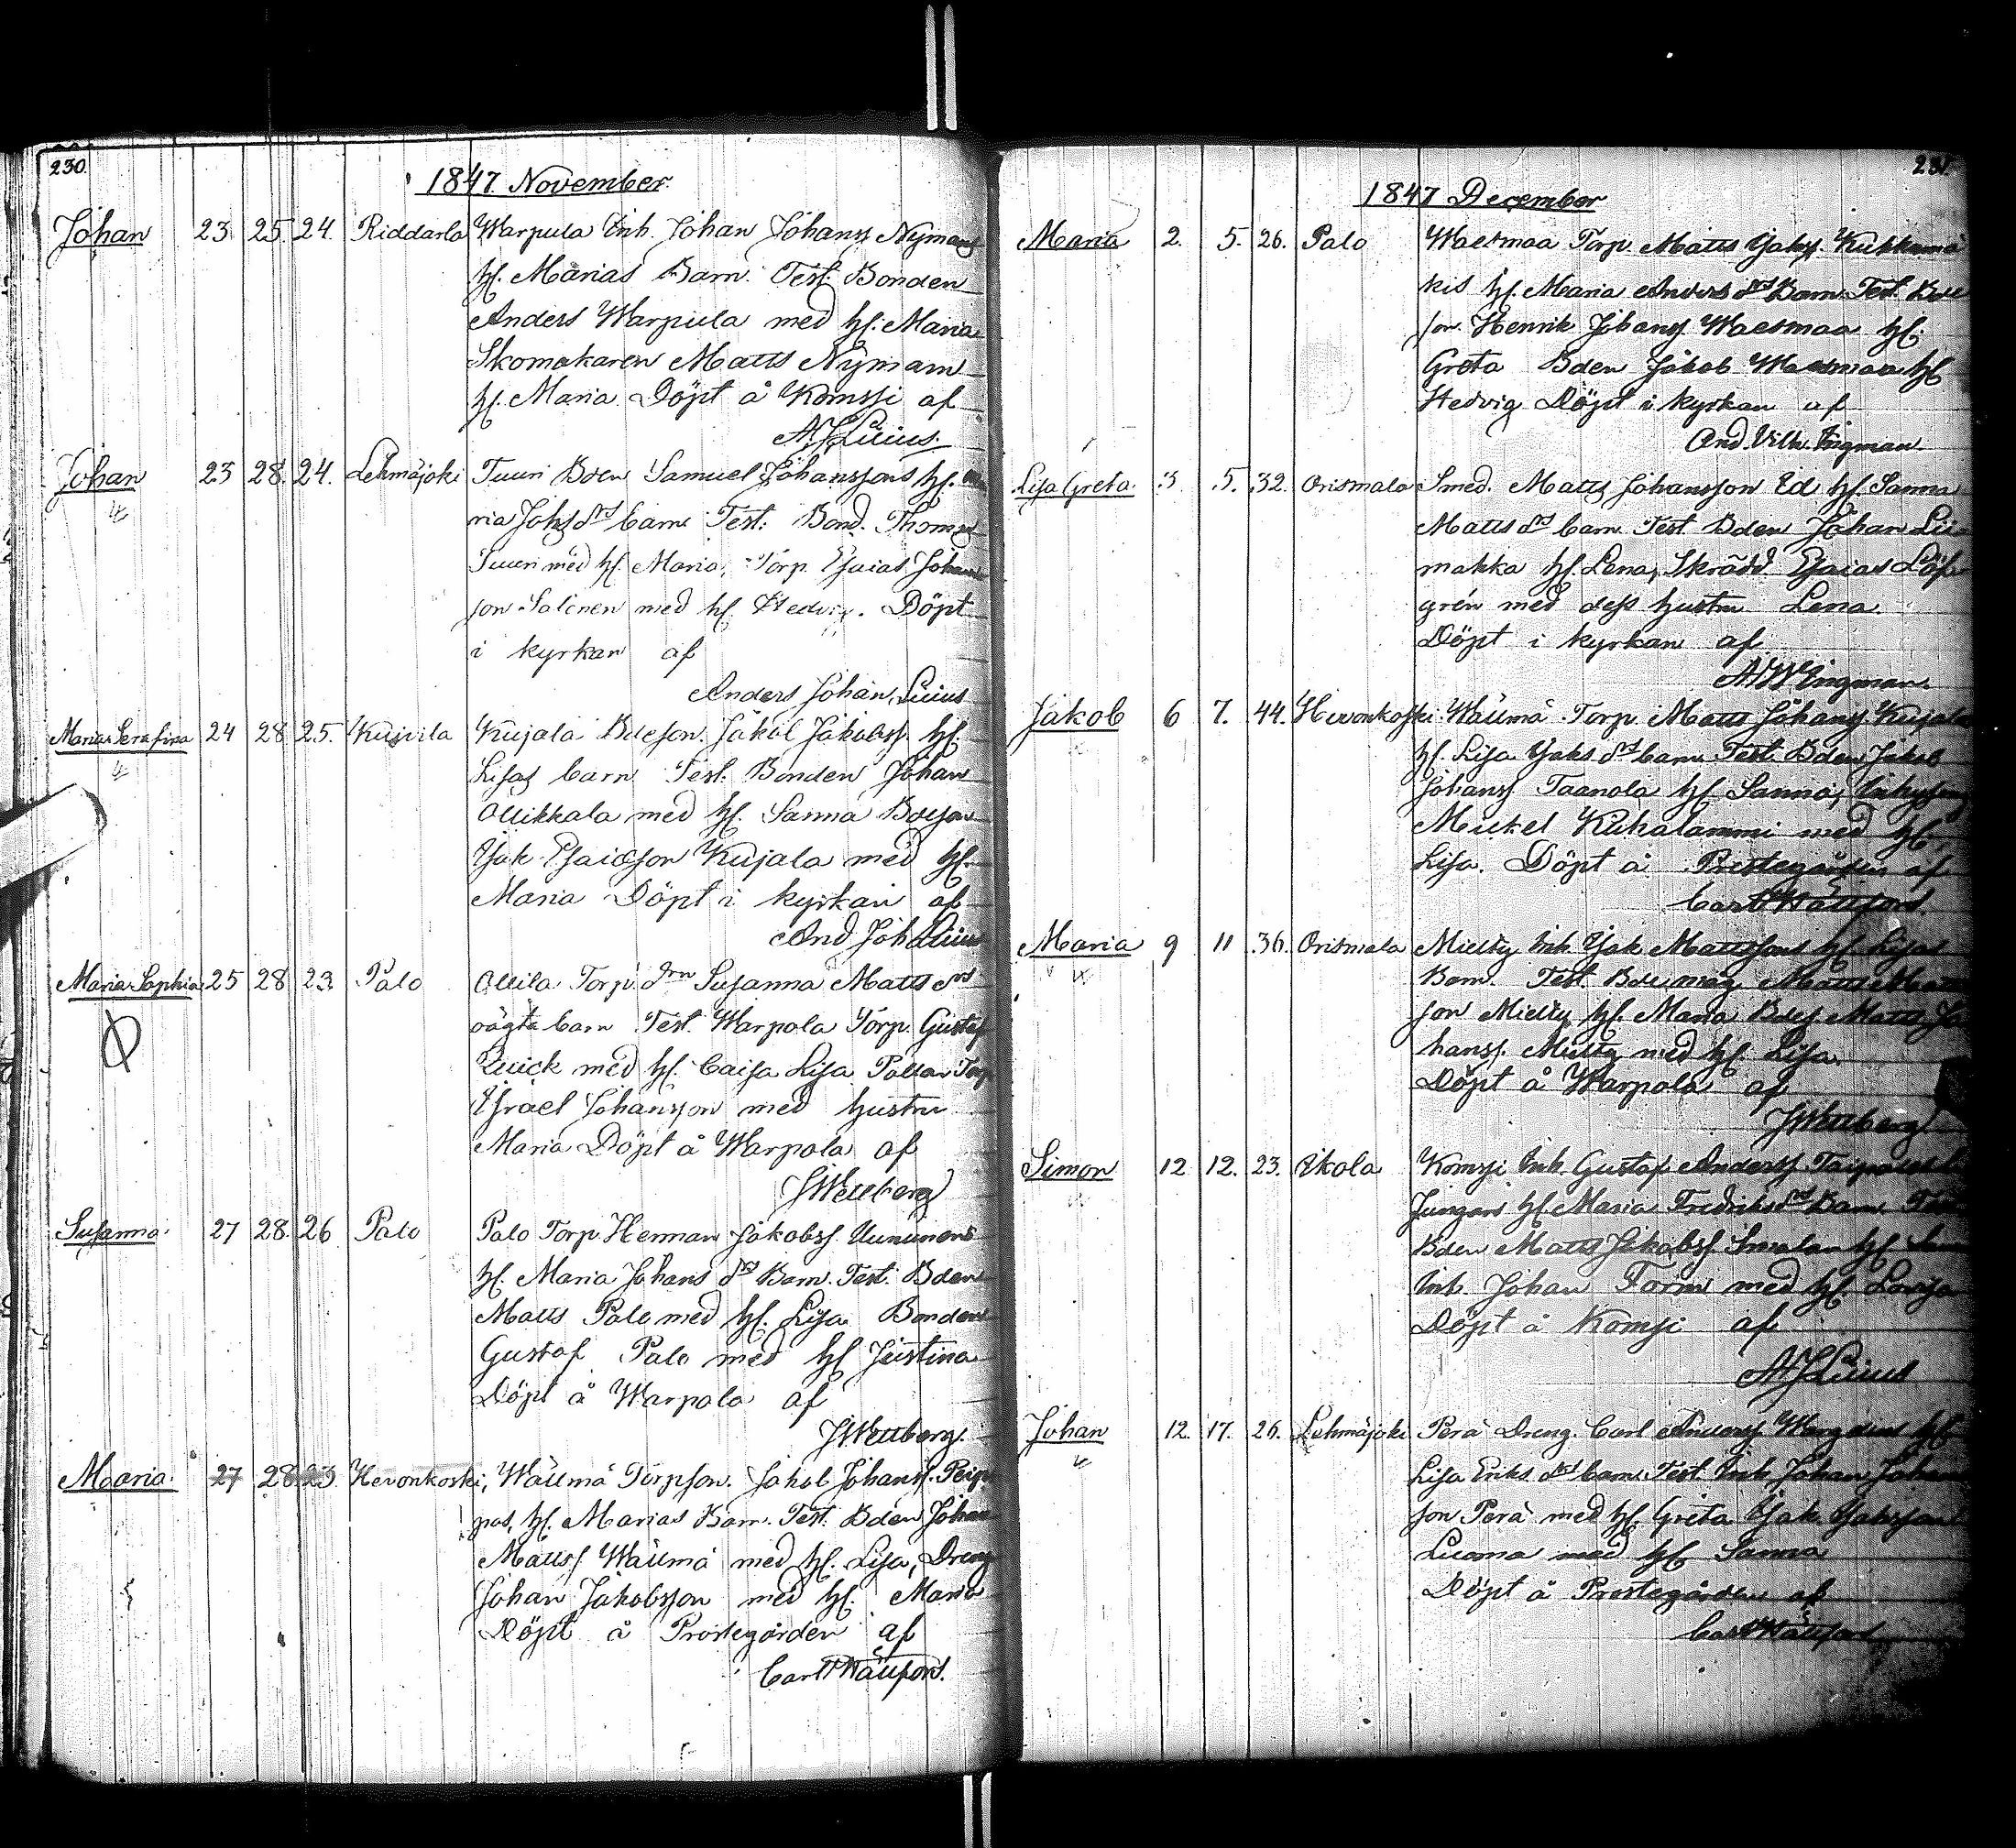 230.
1847. November.
Johan 23. 25. 24. Riddarla Warpula Inh. Johan Johanss Nymans
hf. Marias Barn. Test. Bonden
Anders Warpula med hf. Maria
Skomakaren Matts Nyman
hf. Maria. Döpt å Komssi af
AJLilius.
Johan 23 28. 24. Lehmäjoki Tuuri Bden Samuel Johanssons hf. Ma
ria Johs drs barn Test: Bond. Thomas
Tuuri med hf. Maria, Torp. Esaias Johans
son Salinen med hf. Hedvig. Döpt
i kyrkan af
Anders Johan Lilius
Maria Serafina 24 28 25. Kujvila Kujala Bdeson. Jakob Jakobss. hf.
Lisas barn Test. Bonden Johan
Ollikkala med hf. Sanna Bdeson
Jak. Esaiasson Kujala med hf.
Maria Döpt i kyrkan af
And Joh Lilius
Maria Sophia 25 28 23. Palo Ollila Torp. drn Susanna Matts drs
oägta barn Test. Warpola Torp. Gustaf
Quick med hf. Caisa Lisa Torp
Israel Johansson med hustru
Maria Döpt å Warpola af
JWettberg
Susanna. 27 28. 26 Palo Palo Torp. Herman Jakobss.
hf. Maria Johans drs Barn. Test. Bden
Matts Palo med hf. Lisa. Bonden
Gustaf Palo med hf Justina
Döpt å Warpola af
JWettberg.
Maria. 27 28. 23. Hevonkoski, Wäilmä Torpson. Jakob Johanss. Peip
pos, hf. Marias Barn. Test. Bden Johan
Matts. Wäilmä med hf. Lisa, Dreng
Johan Jakobsson med hf. Maria
Döpt å Prostegården af
Carl Wällfors.
231.
1847 December
Maria 2. 5. 26. Palo Torp. Matts Jaks. Kukkuma
kis hf. Maria Anders drs Barn. Test. Bde
son Henrik Johanss. hf.
Greta Bden Jakob hf
Hedvig Döpt i kyrkan af
And. Vilh. Ingman.
Lisa Greta. 3. 5. 32. Orismala Smed. Matts Johansson Ed hf. Sanna
Matts drs barn Test Bden Johan Lii
makka hf. Lena, Skrädd Esaias Löf
grén med dess hustru Lena
Döpt i kyrkan af
AWIngman.
Jakob 6 7. 44. Hevonkoski Wäilmä Torp. Matts Johanss. Kujala
hf. Lisa Jaks drs barn Test. Bden Jakob
Johanss Taanola hf Sanna,
Mickel Kuhalammi med hf.
Lisa. Döpt å Prostegården af
Carl Wällfors.
Maria 9 11 36. Orismala Mielty Inh. Jak Mattssons hf. Lisas
Barn. Test. Bdemåg Matts
son Mielty hf. Maria Bdes Matts Jo
hanss. Mielty med hf. Lisa.
Döpt å Warpola af
JWettberg
Simon 12 12. 23. Ikola Komssi Inh. Gustaf Anderss
hf. Maria Fredriks drs Barn Test
Bden Matts Jakobss. hf. Sanna
Inh. Johan Form med hf. Lovisa
Döpt å Komssi af
AJLilius
Johan 12. 17. 26. Lehmäjoki Perä Dreng. Carl Anderss hf
Lisa Eriks drs barn. Test. Inh Johan Johans
son Perä med hf. Greta Jak. Jaksson
Luoma med hf Sanna
Döpt å Prostegården af
Carl Wällfors